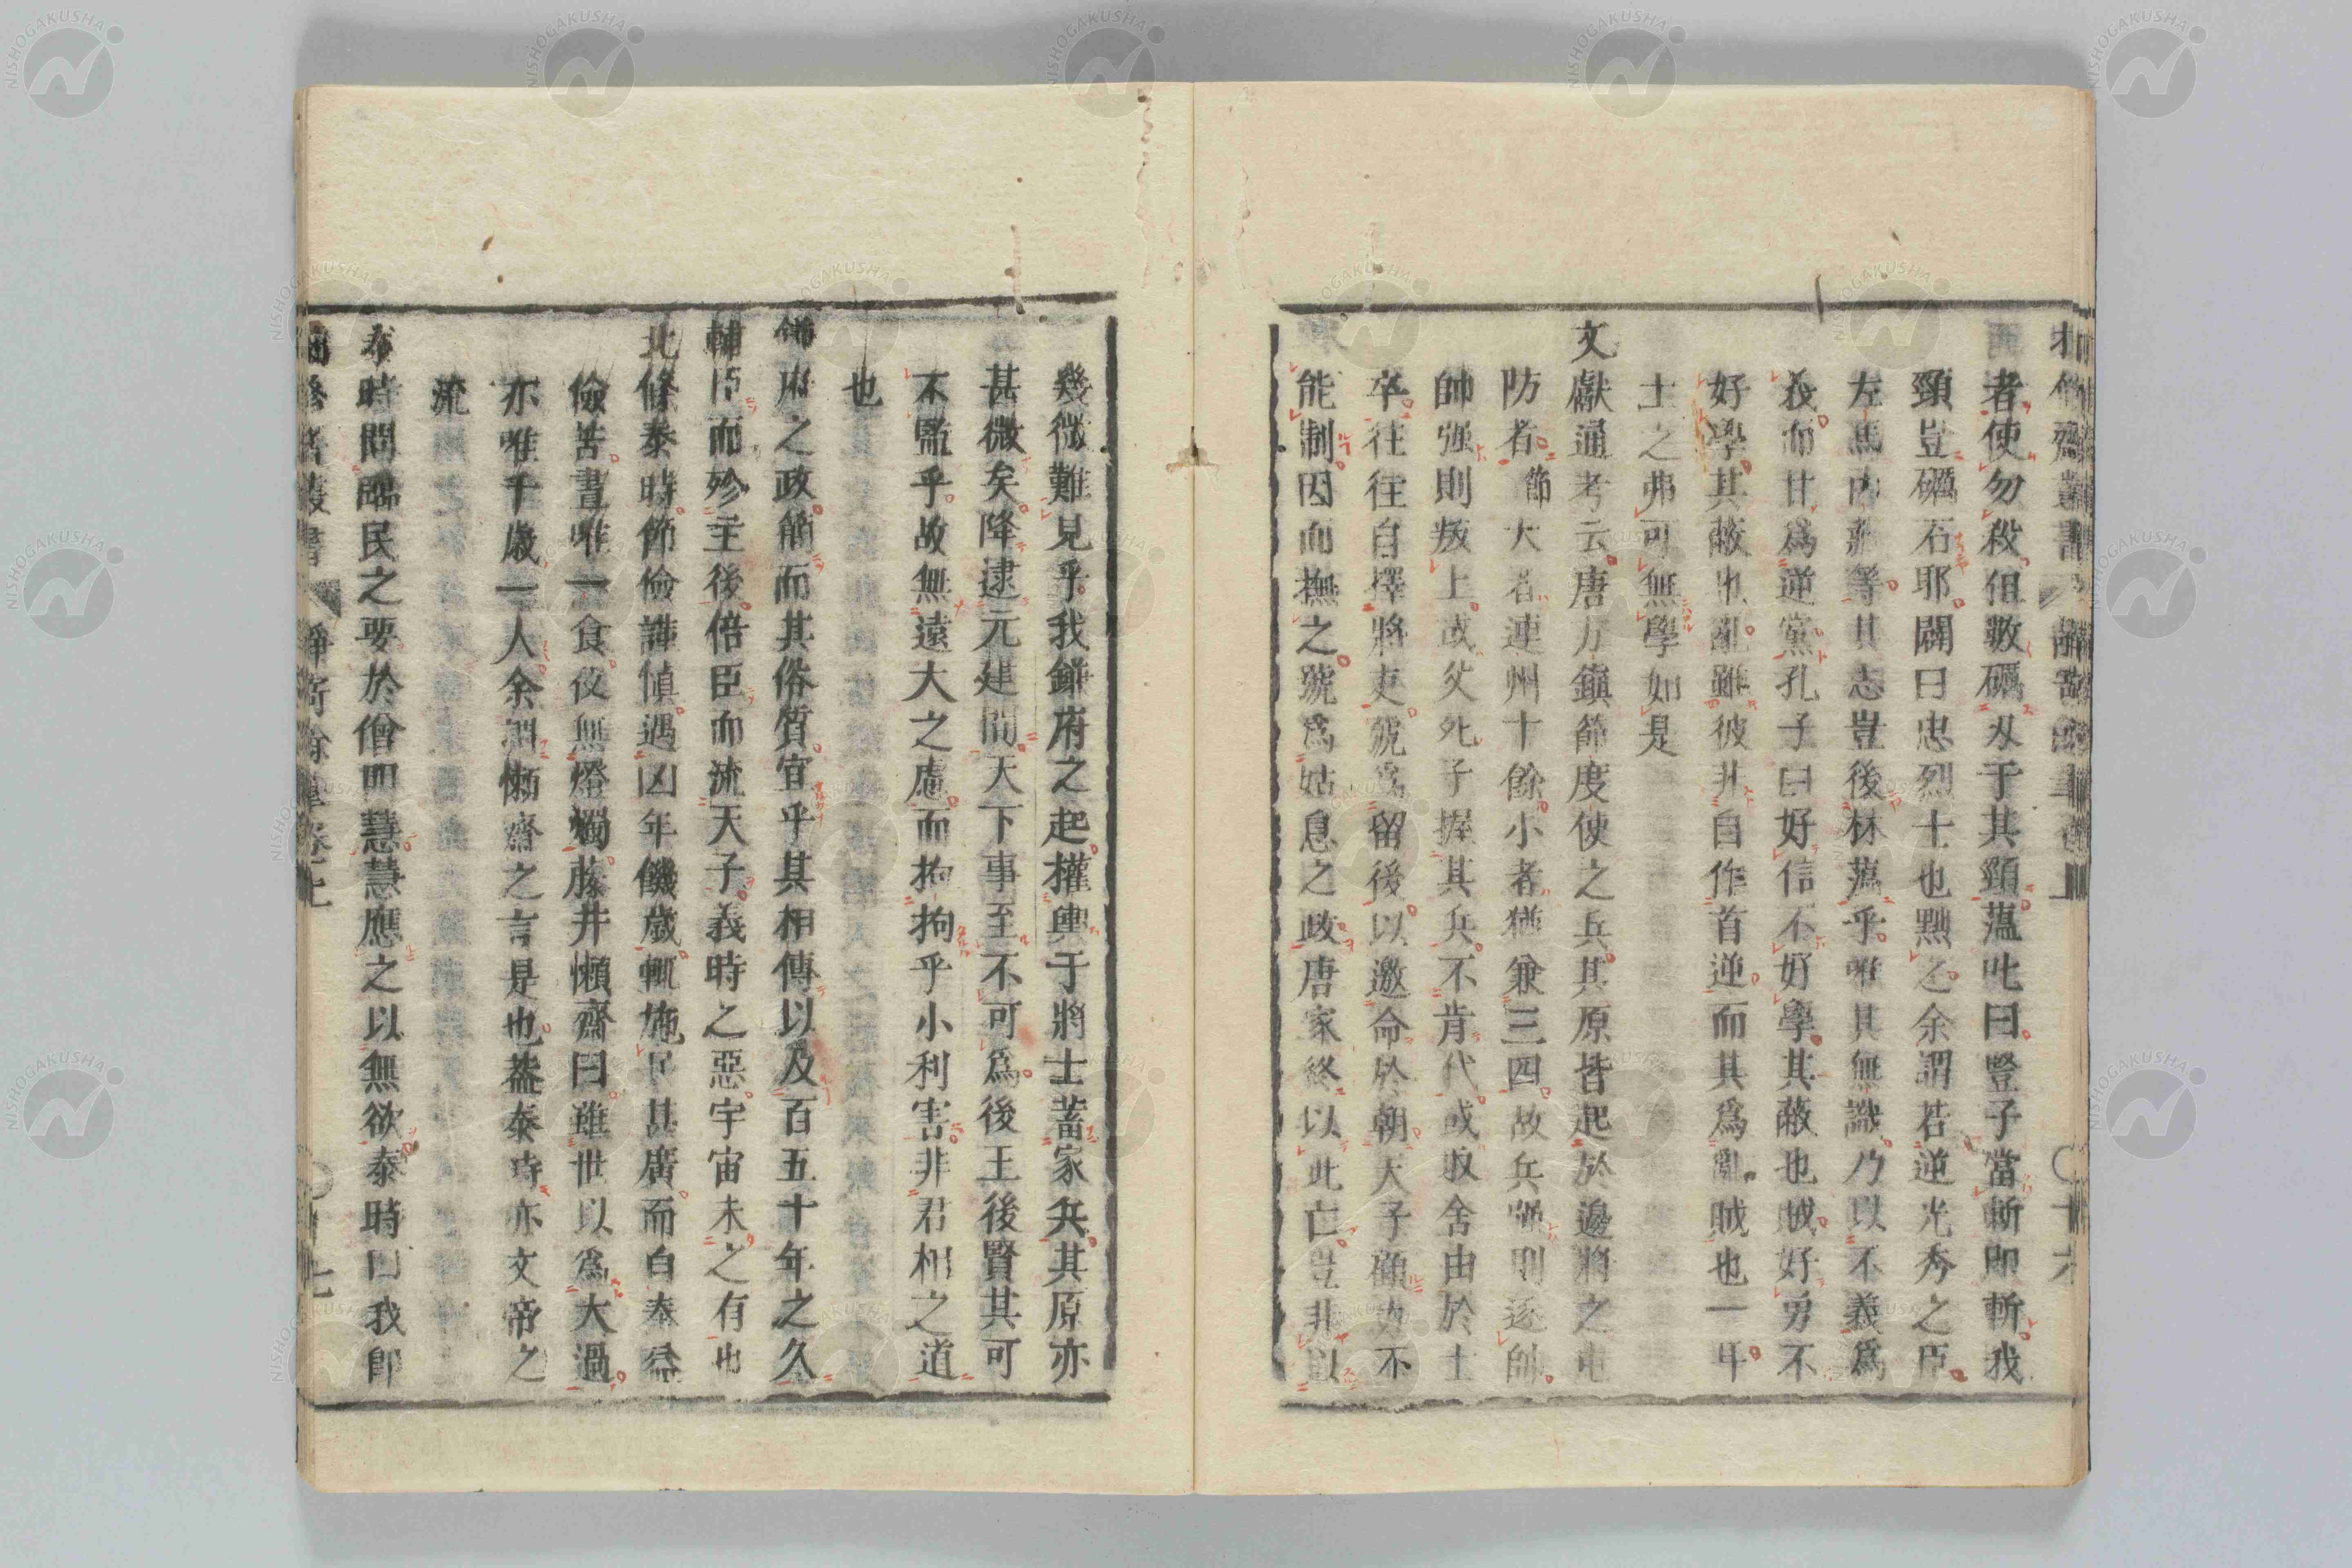 者使勿殺但數礪刄于其頸蘊叱曰豎子當斬即斬我
頸豈礪石耶闢曰忠烈士也黙之余謂若逆光秀之臣
左馬內藏等其志豈後林蘊乎唯其無識乃以不義爲
義而甘爲逆黨孔子曰好信不好學其蔽也賊好勇不
好學其蔽也亂雖彼非自作首逆而其爲亂賊也一耳
士之弗可無學如是
文獻通考云唐方鎮節度使之兵其原皆起於邊將之屯
防者節大者連州十餘小者猶兼三四故兵強則逐帥
帥强則叛上或父死子握其兵不肯代或取舍由於士
卒往往自擇將吏號爲留後以邀命於朝天子顧力不
能制因而撫之號爲姑息之政唐家終以此亡豈非以
幾微難見乎我鎌府之起權輿于將士蓄家兵其原亦
甚微矣降逮元建間天下事至不可爲後王後賢其可
不監乎故無遠大之慮而拘拘乎小利害非君相之道
也
鎌府之政簡而其俗質宜乎其相傳以及百五十年之久
輔臣而殄主後倍臣而流天子義時之惡宇宙未之有也
北條泰時節儉謙慎遇凶年饑歲輒施民甚廣而自奉益
儉苦晝唯一食夜無燈燭藤井懶齋曰雖世以爲大過
亦唯千歲一人余謂懶齋之言是也蓋泰時亦文帝之
流
泰時問臨民之要於僧明慧慧應之以無欲泰時曰我卽